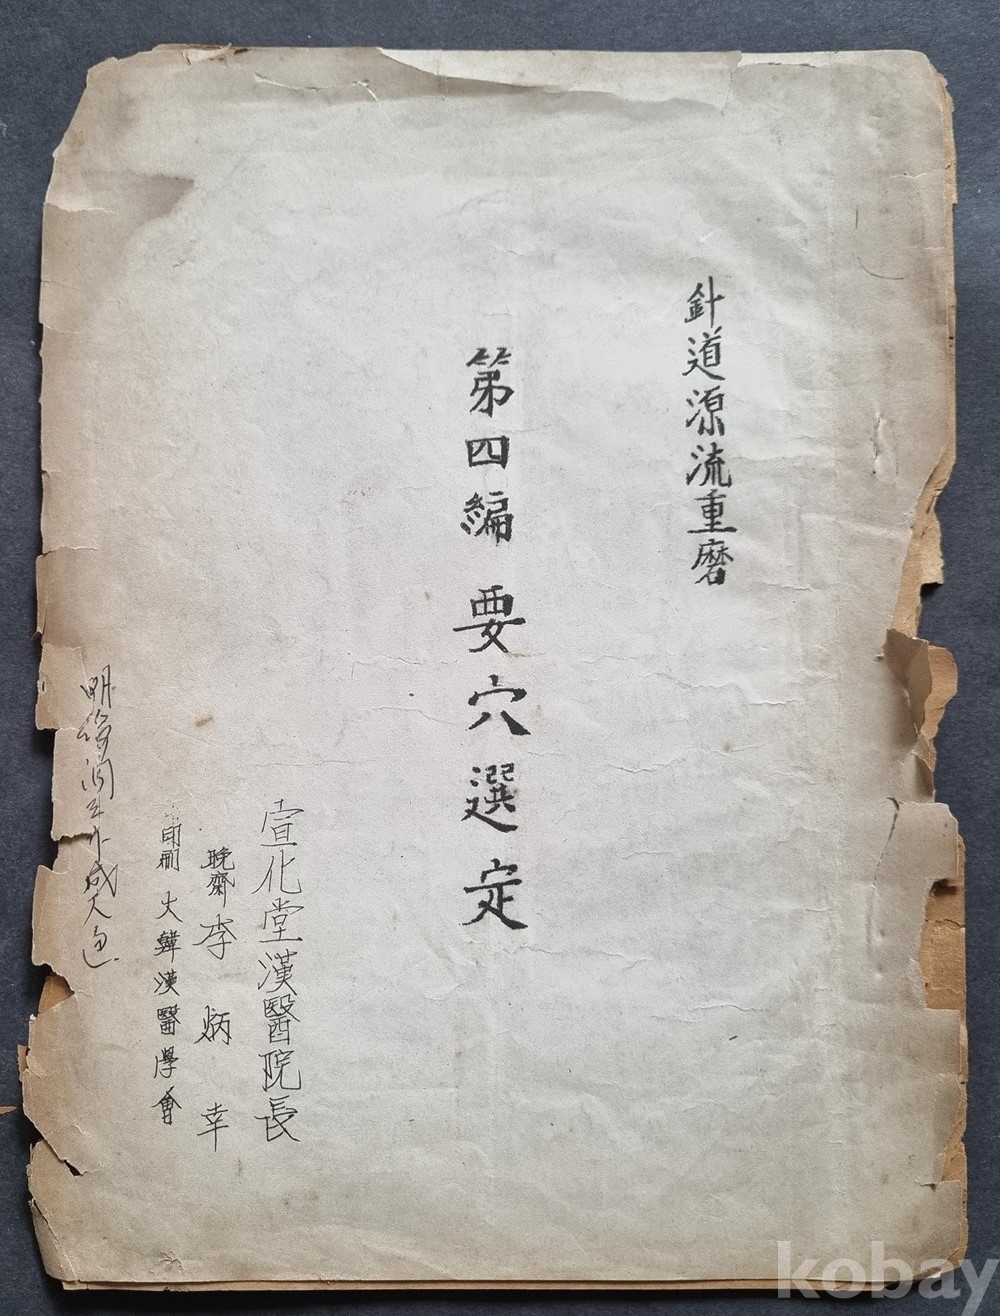 針道源流重磨
第四編 要穴選定
宣化堂漢醫院長
晩齋 李炳幸
印刷 大韓漢醫學會
kobay